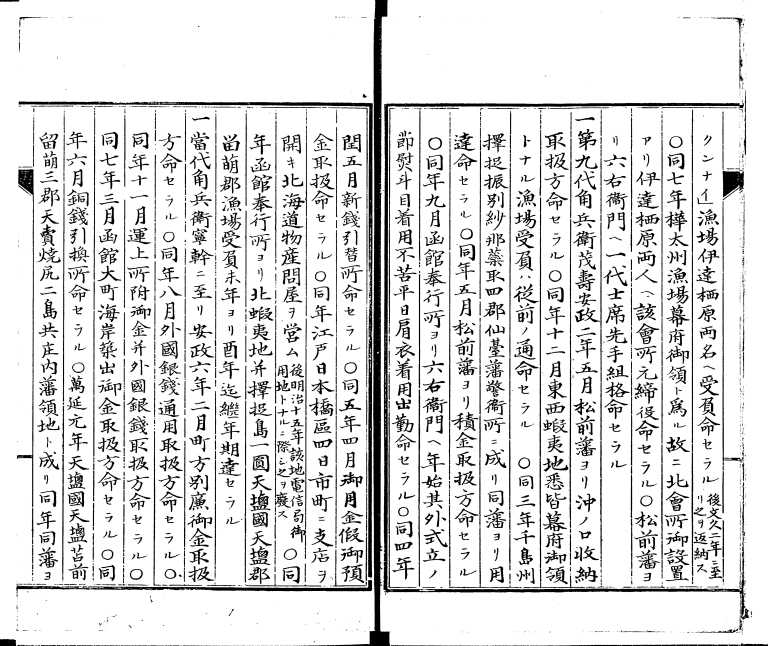 クンナイ」漁場伊達栖原両名ヘ受負命セラル後文久二年ニ至リ之ヲ返納ス
〇同七年樺太州漁場幕府御領ト為ル故ニ北會所御設置
アリ伊達栖原両人ヘ該會所元締役命セラル〇松前藩ヨ
リ六右衛門ヘ一代士席先手組格命セラル
一第九代角兵衛茂壽安政二年五月松前藩ヨリ沖ノ口收納
取扱方命セラル〇同年十二月東西蝦夷地悉皆幕府御領
トナル漁場受負ハ從前ノ通命セラル〇同三年千島州
擇捉振別紗那蘂取四郡仙䑓藩警衛所ニ成リ同藩ヨリ用
達命セラル〇同年五月松前藩ヨリ積金取扱方命セラル
〇同年九月函館奉行所ヨリ六右衛門ヘ年始其外式立ノ
節熨斗目着用不苦平日肩衣着用出勤命セラル〇同四年
閏五月新錢引替所命セラル〇同五年四月御用金假御預
金取扱命セラル〇同年江戸日本橋區四日市町ニ支店ヲ
開キ北海道物産問屋ヲ営ム後明治十五年該地電信局御用地トナルニ際シ之ヲ廢ス〇同
年函館奉行所ヨリ北蝦夷地并擇捉島一圓天塩國天塩郡
留萌郡漁場受負未年ヨリ酉年迄繼年期達セラル
一當代角兵衛寧幹ニ至リ安政六年二月町方別廉御金取扱
方命セラル〇同年八月外國銀錢通用取扱方命セラル〇
同年十一月運上所附御金并外國銀錢取扱方命セラル〇
同七年三月函館大町海岸築出御金取扱方命セラル〇同
年六月銅錢引換所命セラル〇萬延元年天塩國天塩苫前
留萌三郡天賣焼尻二島共庄内藩領地ト成リ同年同藩ヨ